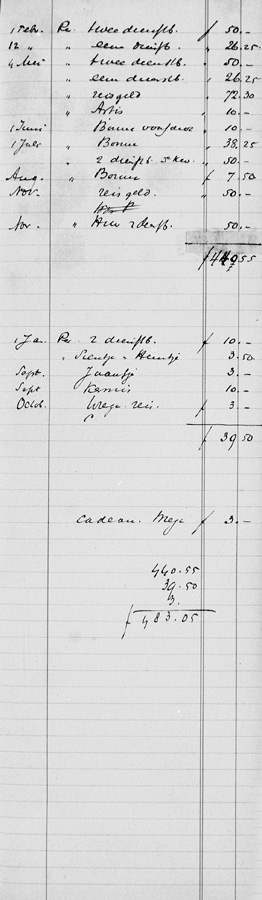 1 Febr. Per twee dienstb. f 50.–
12 " " een dienstb. " 26.25
" Mei " twee dienstb. " 50.–
" een dienstb. " 26.25
" reisgeld " 72.30
" Artis " 10.–
1 Juni " Bonne " 10.–
1 Juli " Bonne " 38.25
" 2 dienstb. " 50.–
Aug. " Bonne f 7.50
Nov. " reisgeld. " 50.–
Nov. " 2 dienstb. 50.–
f 440.55
1 Jan. Per 2 dienstb. f 10.–
" Sientje " Heintje 3.50
Sept. Jaantje 3.–
Sept Kermis 10.–
Octob. reis. f 3.–
f 39.50
Cadeau f 3.–
440.55
39.50
3.
f 483.05